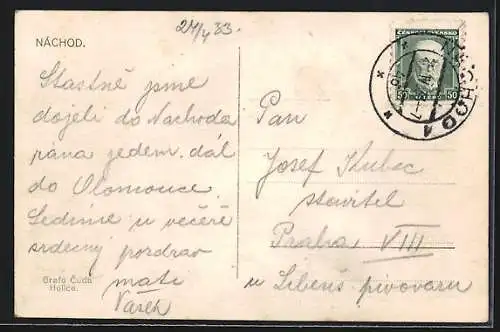 27/4 33.
NÁCHOD.
Stastně jsme
dojeli do Nachoda
rána jedem. dál
do Olomouce.
Sedíme u večeře
srdecny pozdrav
Vašek
Grafo Čuda
Holice.
ČESKOSLOVENSKO
50 50
NÁCHOD 1
Pan
Josef Kubec
stavitel
Praha VIII
u Libeňs pivovaru